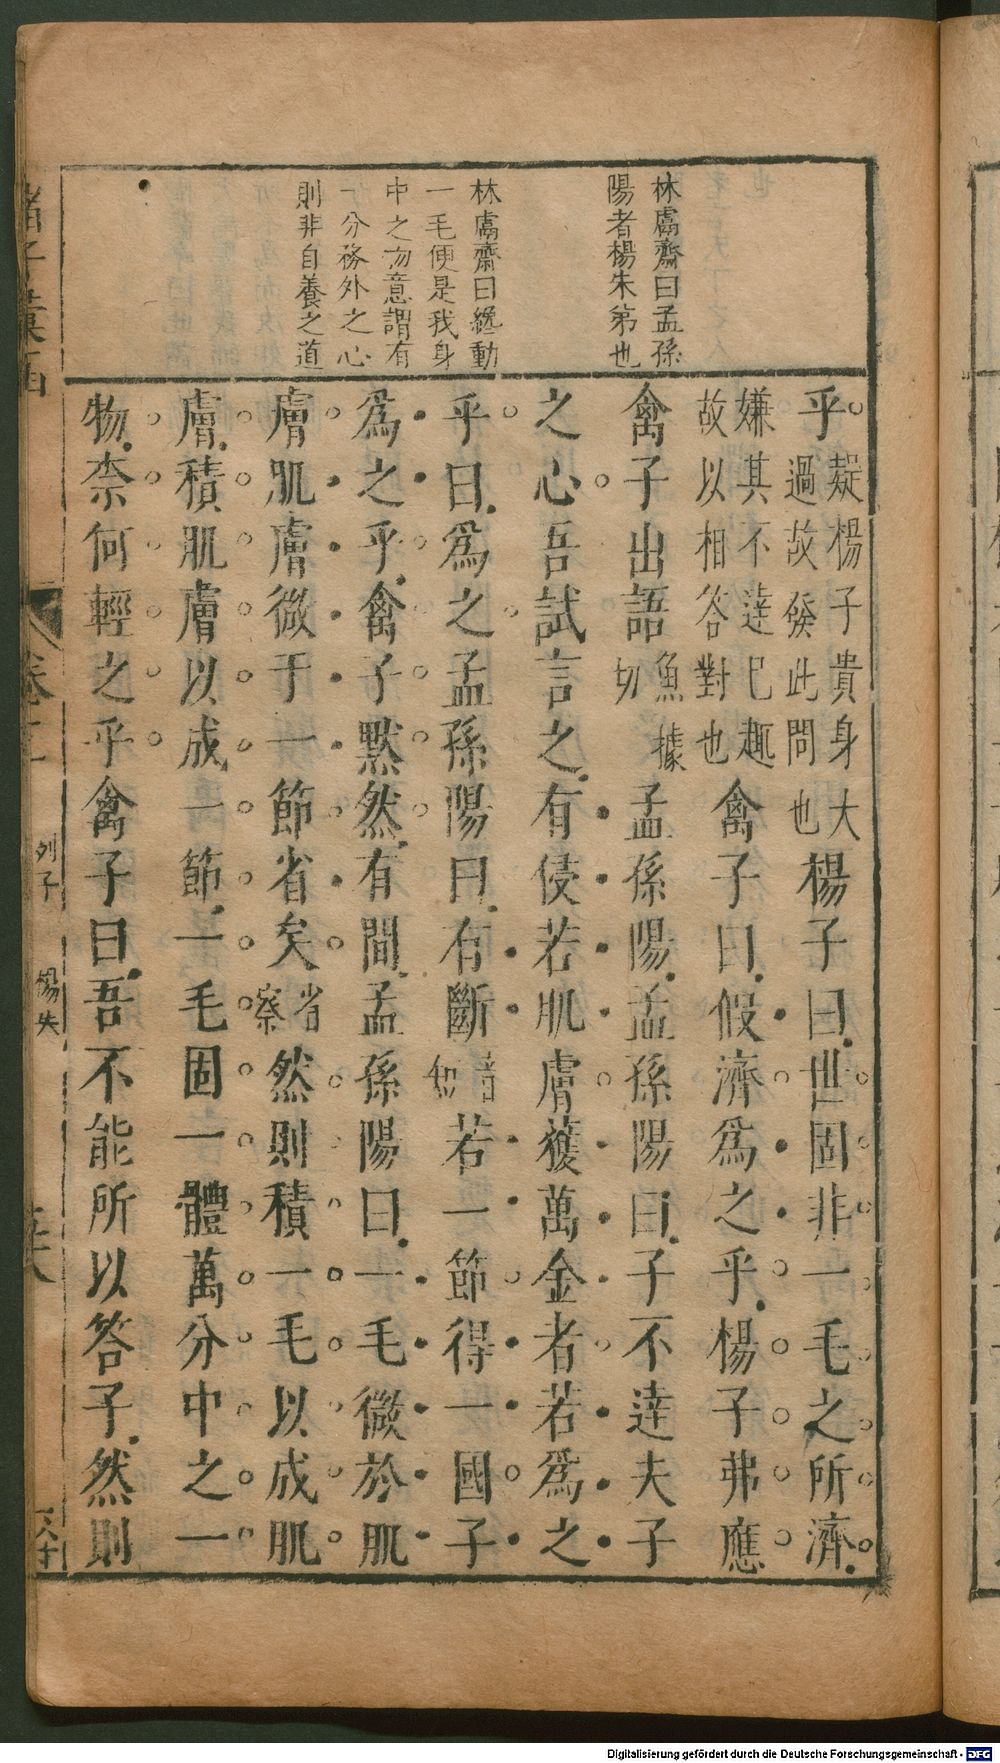 林鬳齋曰孟孫
陽者楊朱弟也
林鬳齋曰纔動
一毛便是我身
中之物意謂有
一分務外之心
則非自養之道
乎疑楊子貴身大過故發此問也楊子曰世固非一毛之所濟
嫌其不逹巳趣故以相答對也禽子曰假濟爲之乎楊子弗應
禽子出語魚據切孟孫陽孟孫陽曰子不逹夫子
之心吾試言之有侵若肌膚獲萬金者若爲之
乎曰爲之孟孫陽曰有斷音短若一節得一國子
爲之乎禽子黙然有間孟孫陽曰一毛微於肌
膚肌膚微于一節省矣省察然則積一毛以成肌
膚積肌膚以成一節一毛固一體萬分中之一
物柰何輕之乎禽子曰吾不能所以答子然則
諸子彙函
卷十二
列子
楊朱
Digitalisierung gefördert durch die Deutsche Forschungsgemeinschaft - DFG